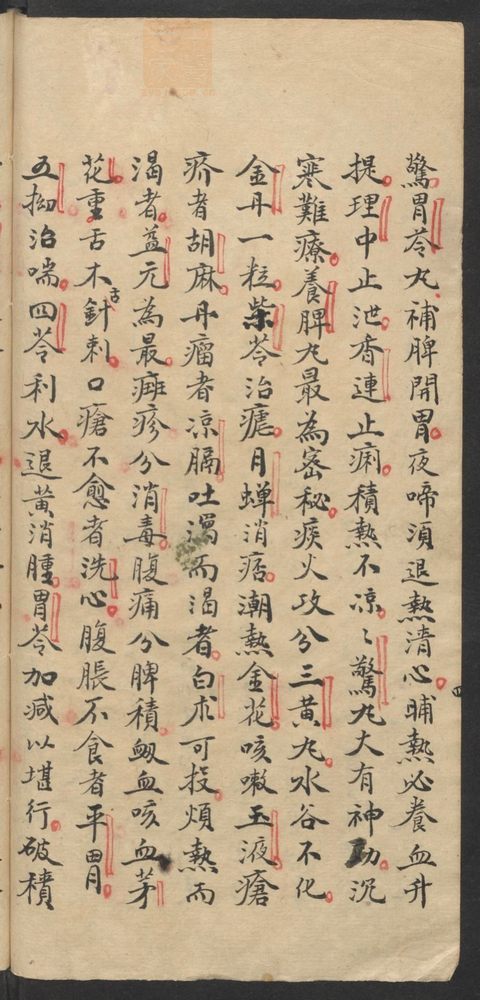 驚胃苓丸補脾開胃夜啼須退熱清心晡熱必養血升
提理中止泄香連止痢積熱不凉〻驚丸大有神功沉
寒難療養脾丸最為宻秘痰火攻兮三黄丸水谷不化
金丹一粒柴苓治瘧月蟬消痞潮熱金花咳嗽玉液瘡
疥者胡麻丹瘤者凉膈吐瀉而渴者白朮可投煩熱而
渴者益元為最痲疹兮消毒腹痛兮脾積衂血咳血茅
花重舌木舌針刺口瘡不愈者洗心腹脹不食者平胃
五拗治喘四苓利水退黄消腫胃苓加减以堪行破積